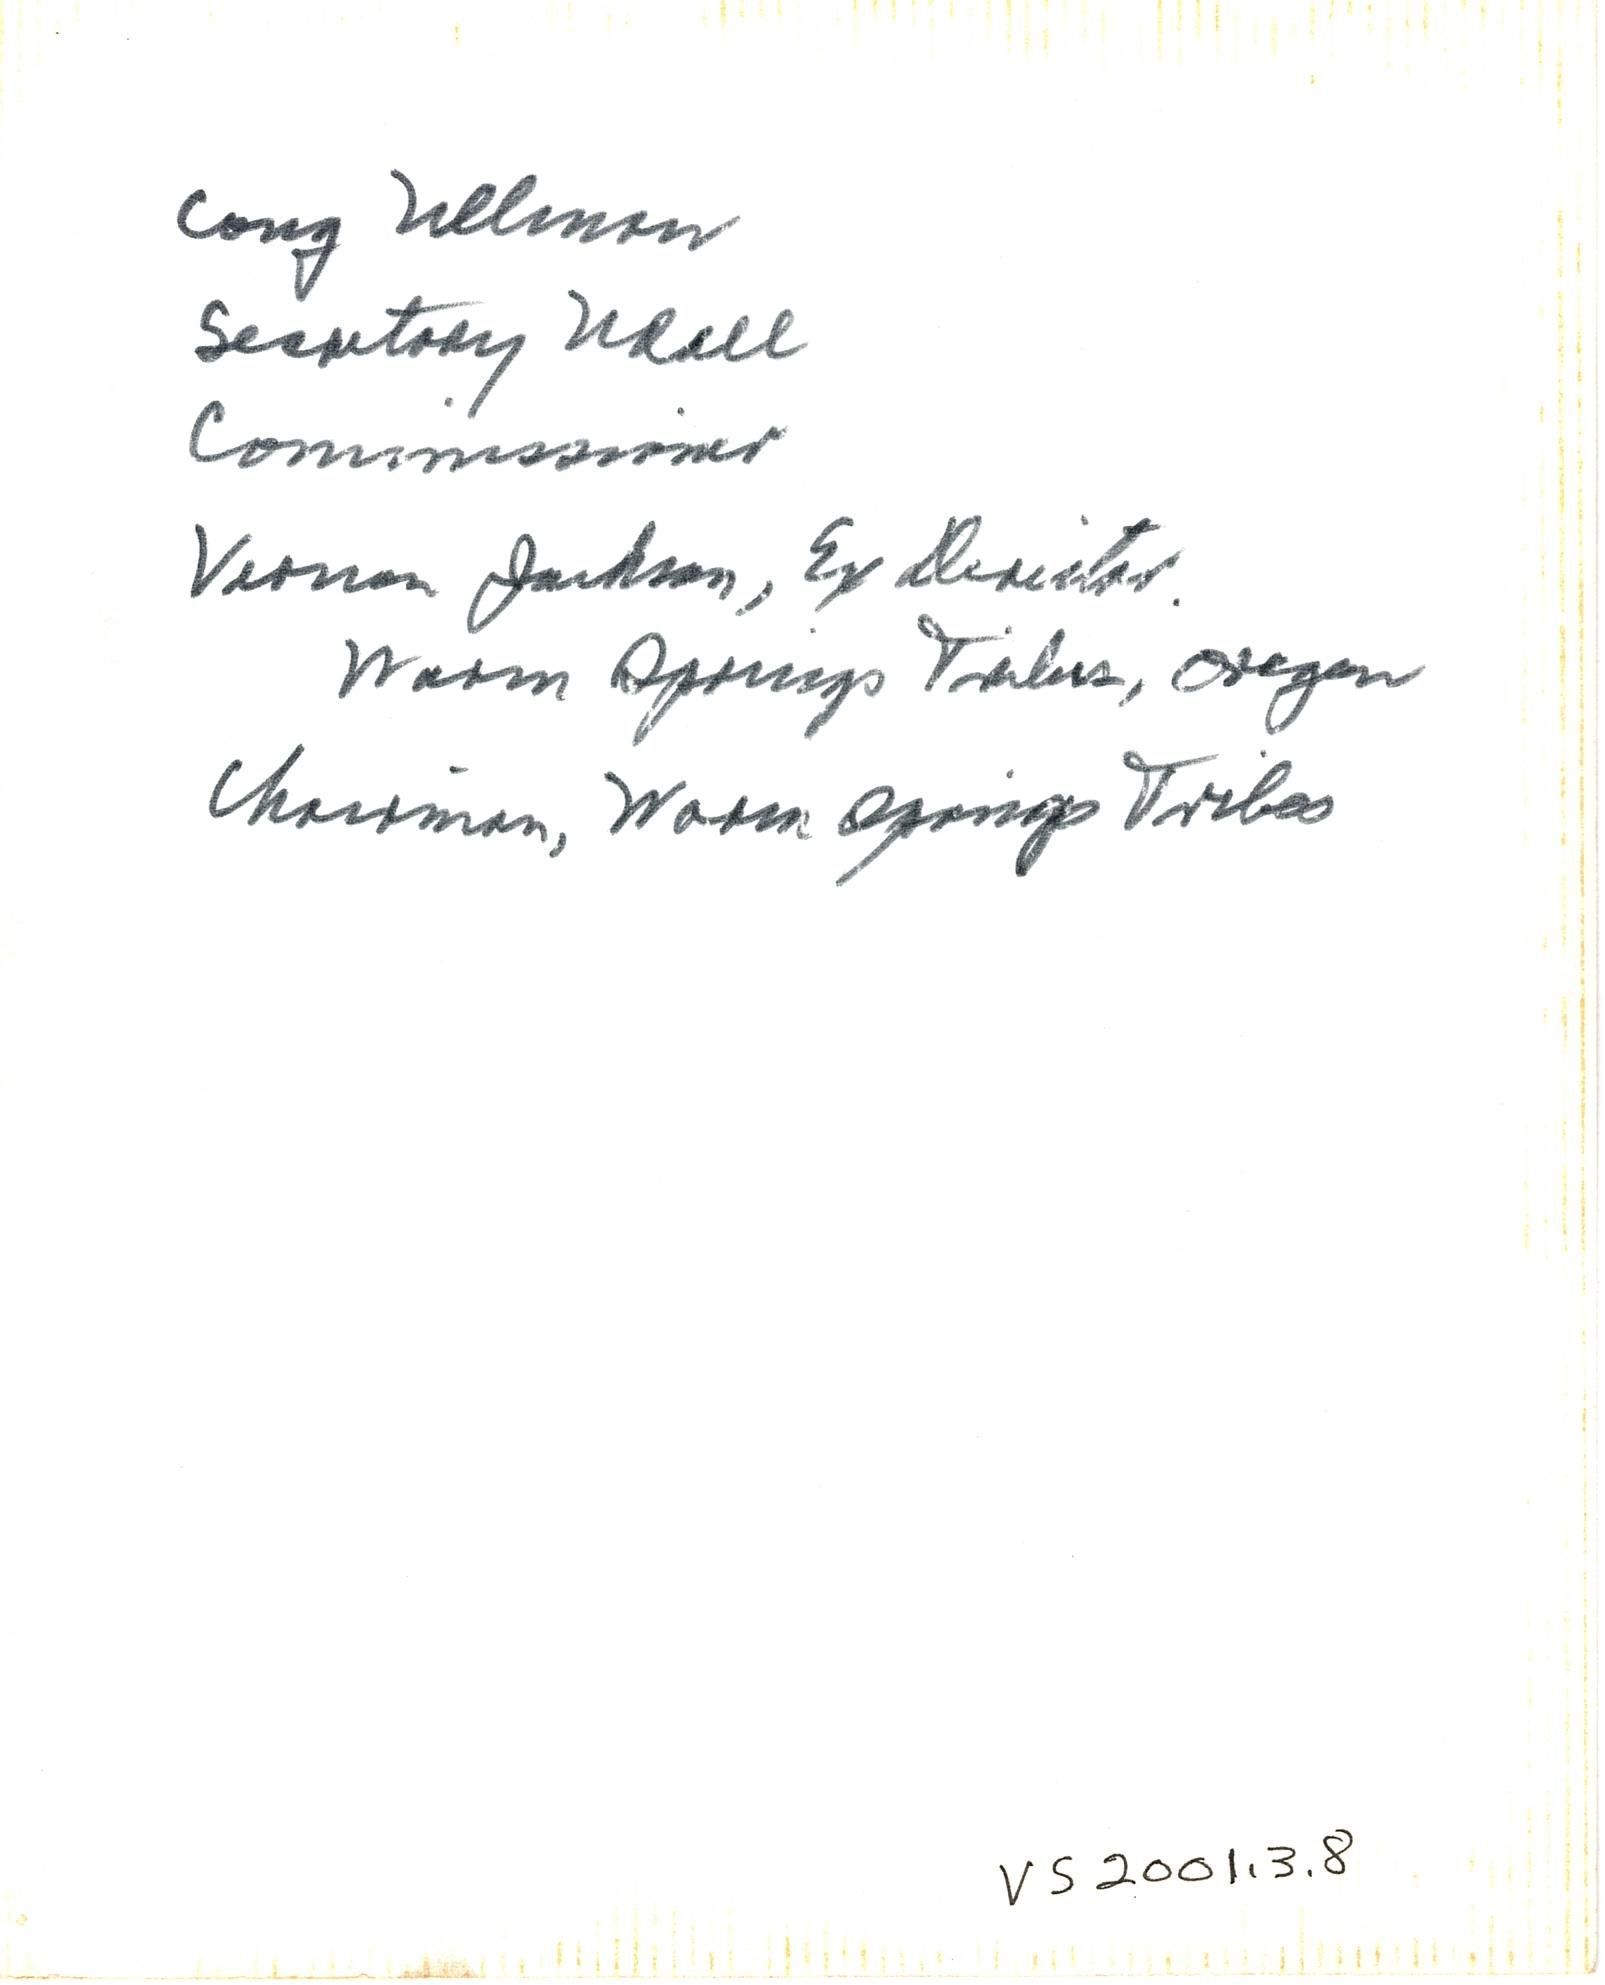 Cong Ullman
Secretary Udall
Commissioner
Vernon Jackson, Ex Director.
Warm Springs Tribes, Oregon
Chairman, Warm Springs Tribes
VS2001.3.8